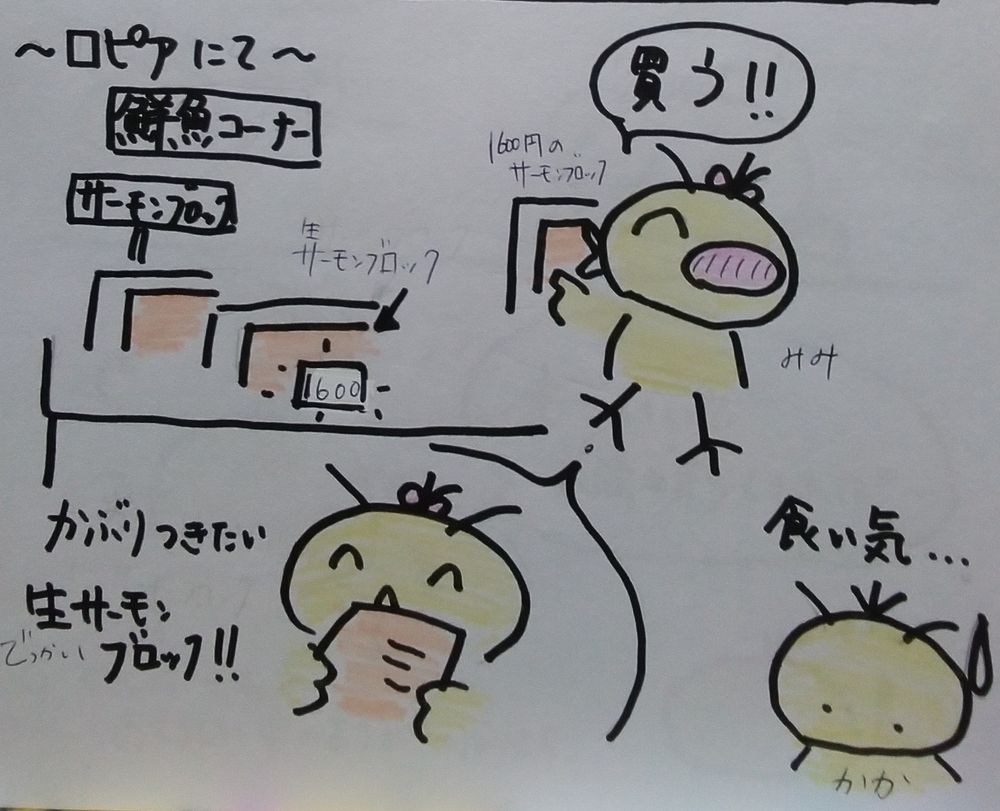 ～ロピアにて～
鮮魚コーナー
サーモンブロック
生
サーモンブロック
1600
買う!!
1600円の
サーモンブロック
みみ
かぶりつきたい
生サーモン
でっかいブロック!!
食い気…
かか